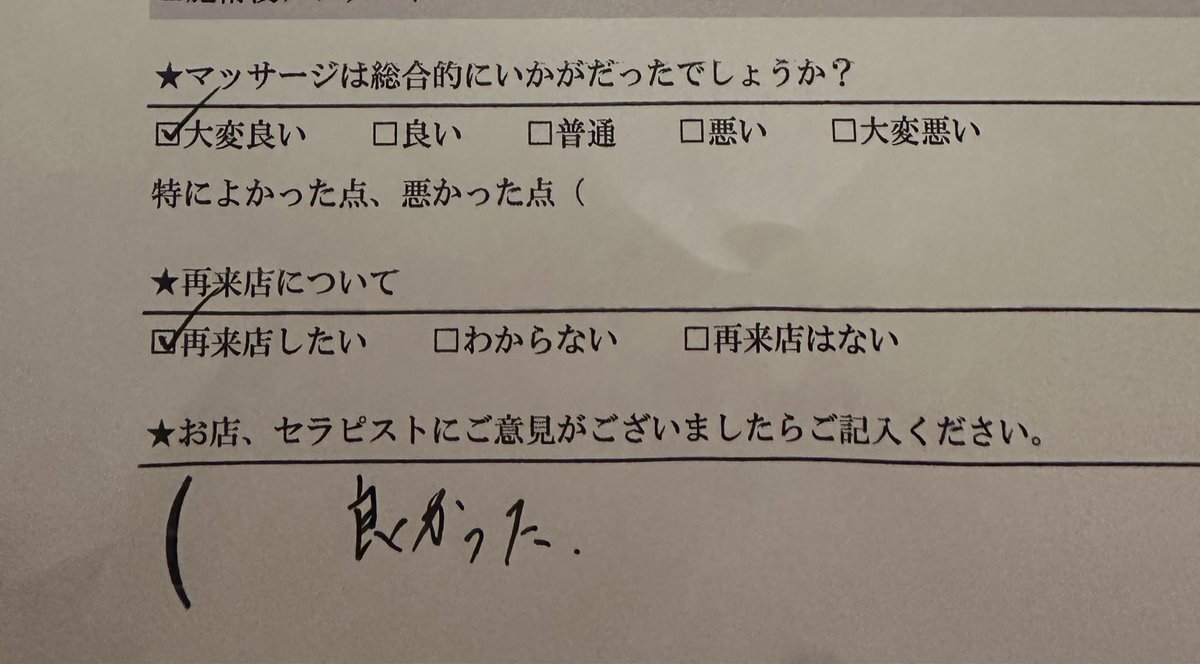 ★マッサージは総合的にいかがだったでしょうか？
☑大変良い □良い □普通 □悪い □大変悪い
特によかった点、悪かった点（
★再来店について
☑再来店したい □わからない □再来店はない
★お店、セラピストにご意見がございましたらご記入ください。
( 良かった.